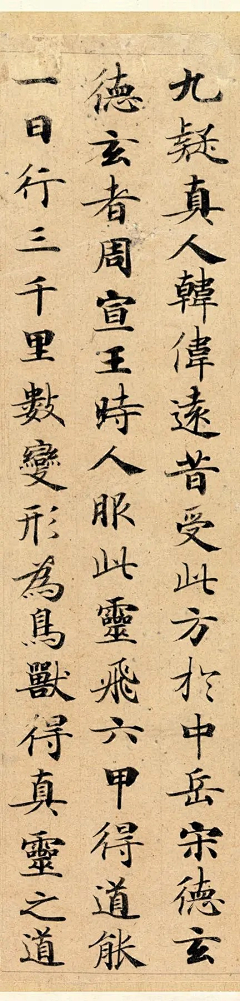 九疑真人韓偉遠昔受此方於中岳宋德玄
德玄者周宣王時人服此靈飛六甲得道能
一日行三千里數變形為鳥獸得真靈之道